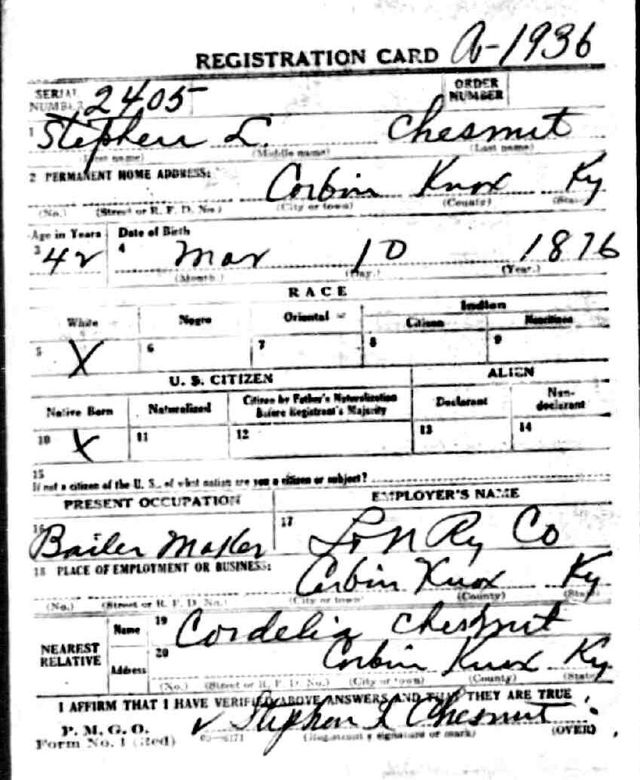 REGISTRATION CARD A-1936
SERIAL NUMBER 2405 ORDER NUMBER
1 Stephen L. Chesnut
(First name) (Middle name) (Last name)
2 PERMANENT HOME ADDRESS: Corbin Knox Ky
(No.) (Street or R. F. D. No.) (City or town) (County) (State)
Age in Years Date of Birth
3 42 4 Mar 10 1876
(Month.) (Day.) (Year.)
RACE
White Negro Oriental Indian
Citizen Noncitizen
5 X 6 7 8 9
U. S. CITIZEN ALIEN
Native Born Naturalized Citizen by Father's Naturalization Before Registrant's Majority Declarant Non-declarant
10 X 11 12 13 14
15
If not a citizen of the U. S., of what nation are you a citizen or subject?
PRESENT OCCUPATION EMPLOYER'S NAME
16 Bailer Maker 17 L & N Ry Co
18 PLACE OF EMPLOYMENT OR BUSINESS: Corbin Knox Ky
(No.) (Street or R. F. D. No.) (City or town) (County) (State)
NEAREST RELATIVE Name 19 Cordelia Chesnut
Address 20 Corbin Knox Ky
(No.) (Street or R. F. D. No.) (City or town) (County) (State)
I AFFIRM THAT I HAVE VERIFIED ABOVE ANSWERS AND THAT THEY ARE TRUE
P. M. G. O. Stephen L Chesnut
Form No. 1 (Red) (Registrant's signature or mark) (OVER)